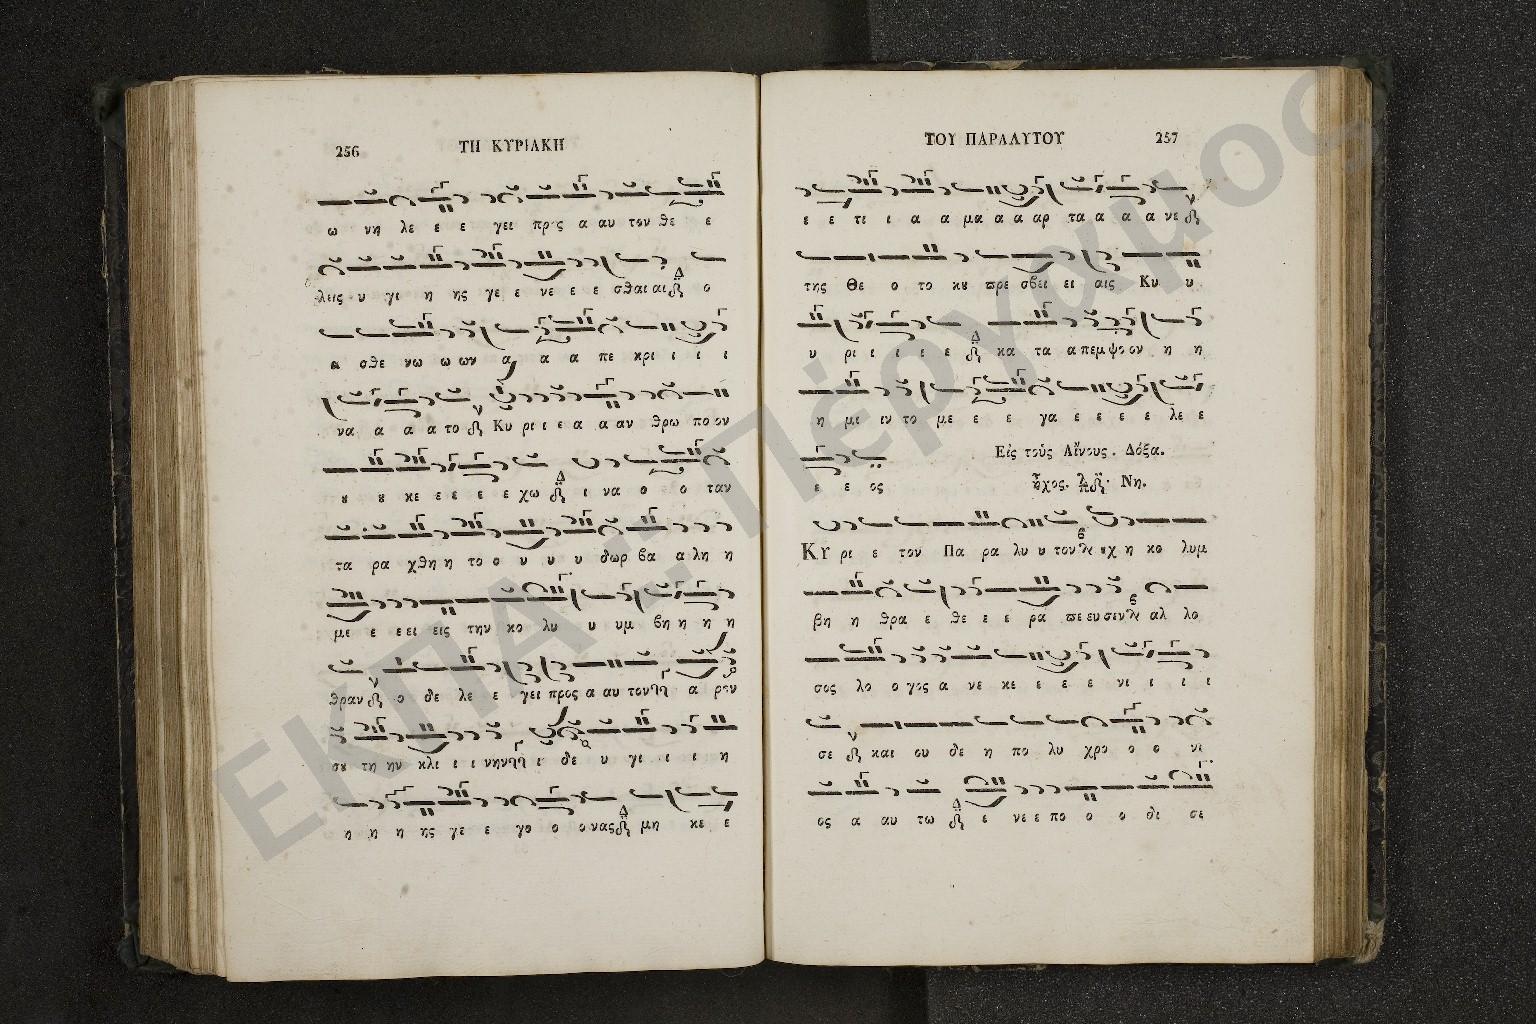 256 ΤΗ ΚΥΡΙΑΚΗ
ω νη λε ε ε γει προς α αυ τον θε ε
λεις υ γι η ης γε ε νε ε ε σθαι αι ο
α σθε νω ω ων α α α πε κρι ι ι ι
να α α α το Κυ ρι ι ε α α αν θρω πο ον
ου ου κε ε ε ε ε χω ι να ο ο ταν
τα ρα χθη η το ο υ υ υ δωρ βα α λη η
με ε ε ει εις την κο λυ υ υμ βη η η η
θραν ο δε λε ε γει προς α αυ τον α ρον
σου τη ην κλι ι ι νην ι δε υ γι ι ι η
η η η ης γε ε γο ο ο νας μη κε ε
ΤΟΥ ΠΑΡΑΛΥΤΟΥ 257
ε ε τι ι α α μα α α αρ τα α α α νε
της Θε ο το κου πρε σβει ει αις Κυ υ
υ ρι ι ι ε ε κα τα α πεμ ψο ον η η
η μι ιν το με ε ε γα ε ε ε ε λε ε
Εἰς τοὺς Αἴνους. Δόξα.
ε ε ος ἦχος. Νη.
Κυ ρι ε τον Πα ρα λυ υ τον ουχ η κο λυμ
βη η θρα ε θε ε ε ρα πε ευ σεν αλ λο
σος λο ο γος α νε κε ε ε ε νι ι ι ι
σε και ου δε η πο λυ χρο ο ο νι
ος α αυ τω ε νε ε πο ο ο δι σε
ΕΚΠΑ - Πέργαμος